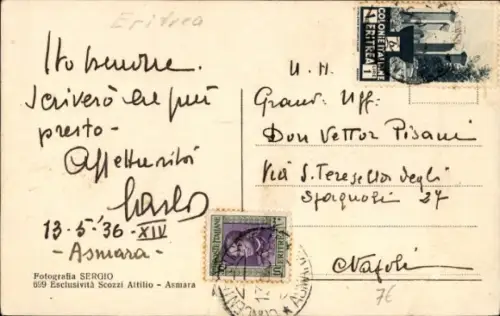 Eritrea
Sto benone.
Scriverò al più
presto-
Affettuosità
Carlo
13-5-'36-XIV
-Asmara-
Fotografia SERGIO
699 Esclusività Scozzi Attilio - Asmara
COLONIE ITALIANE
ERITREA
U. H.
Grand. Uff:
Don Vettor Pisani
Via S. Teresella degli
Spagnoli 27
Napoli
7€
POSTE ITALIANE
ERITREA
ASMARA